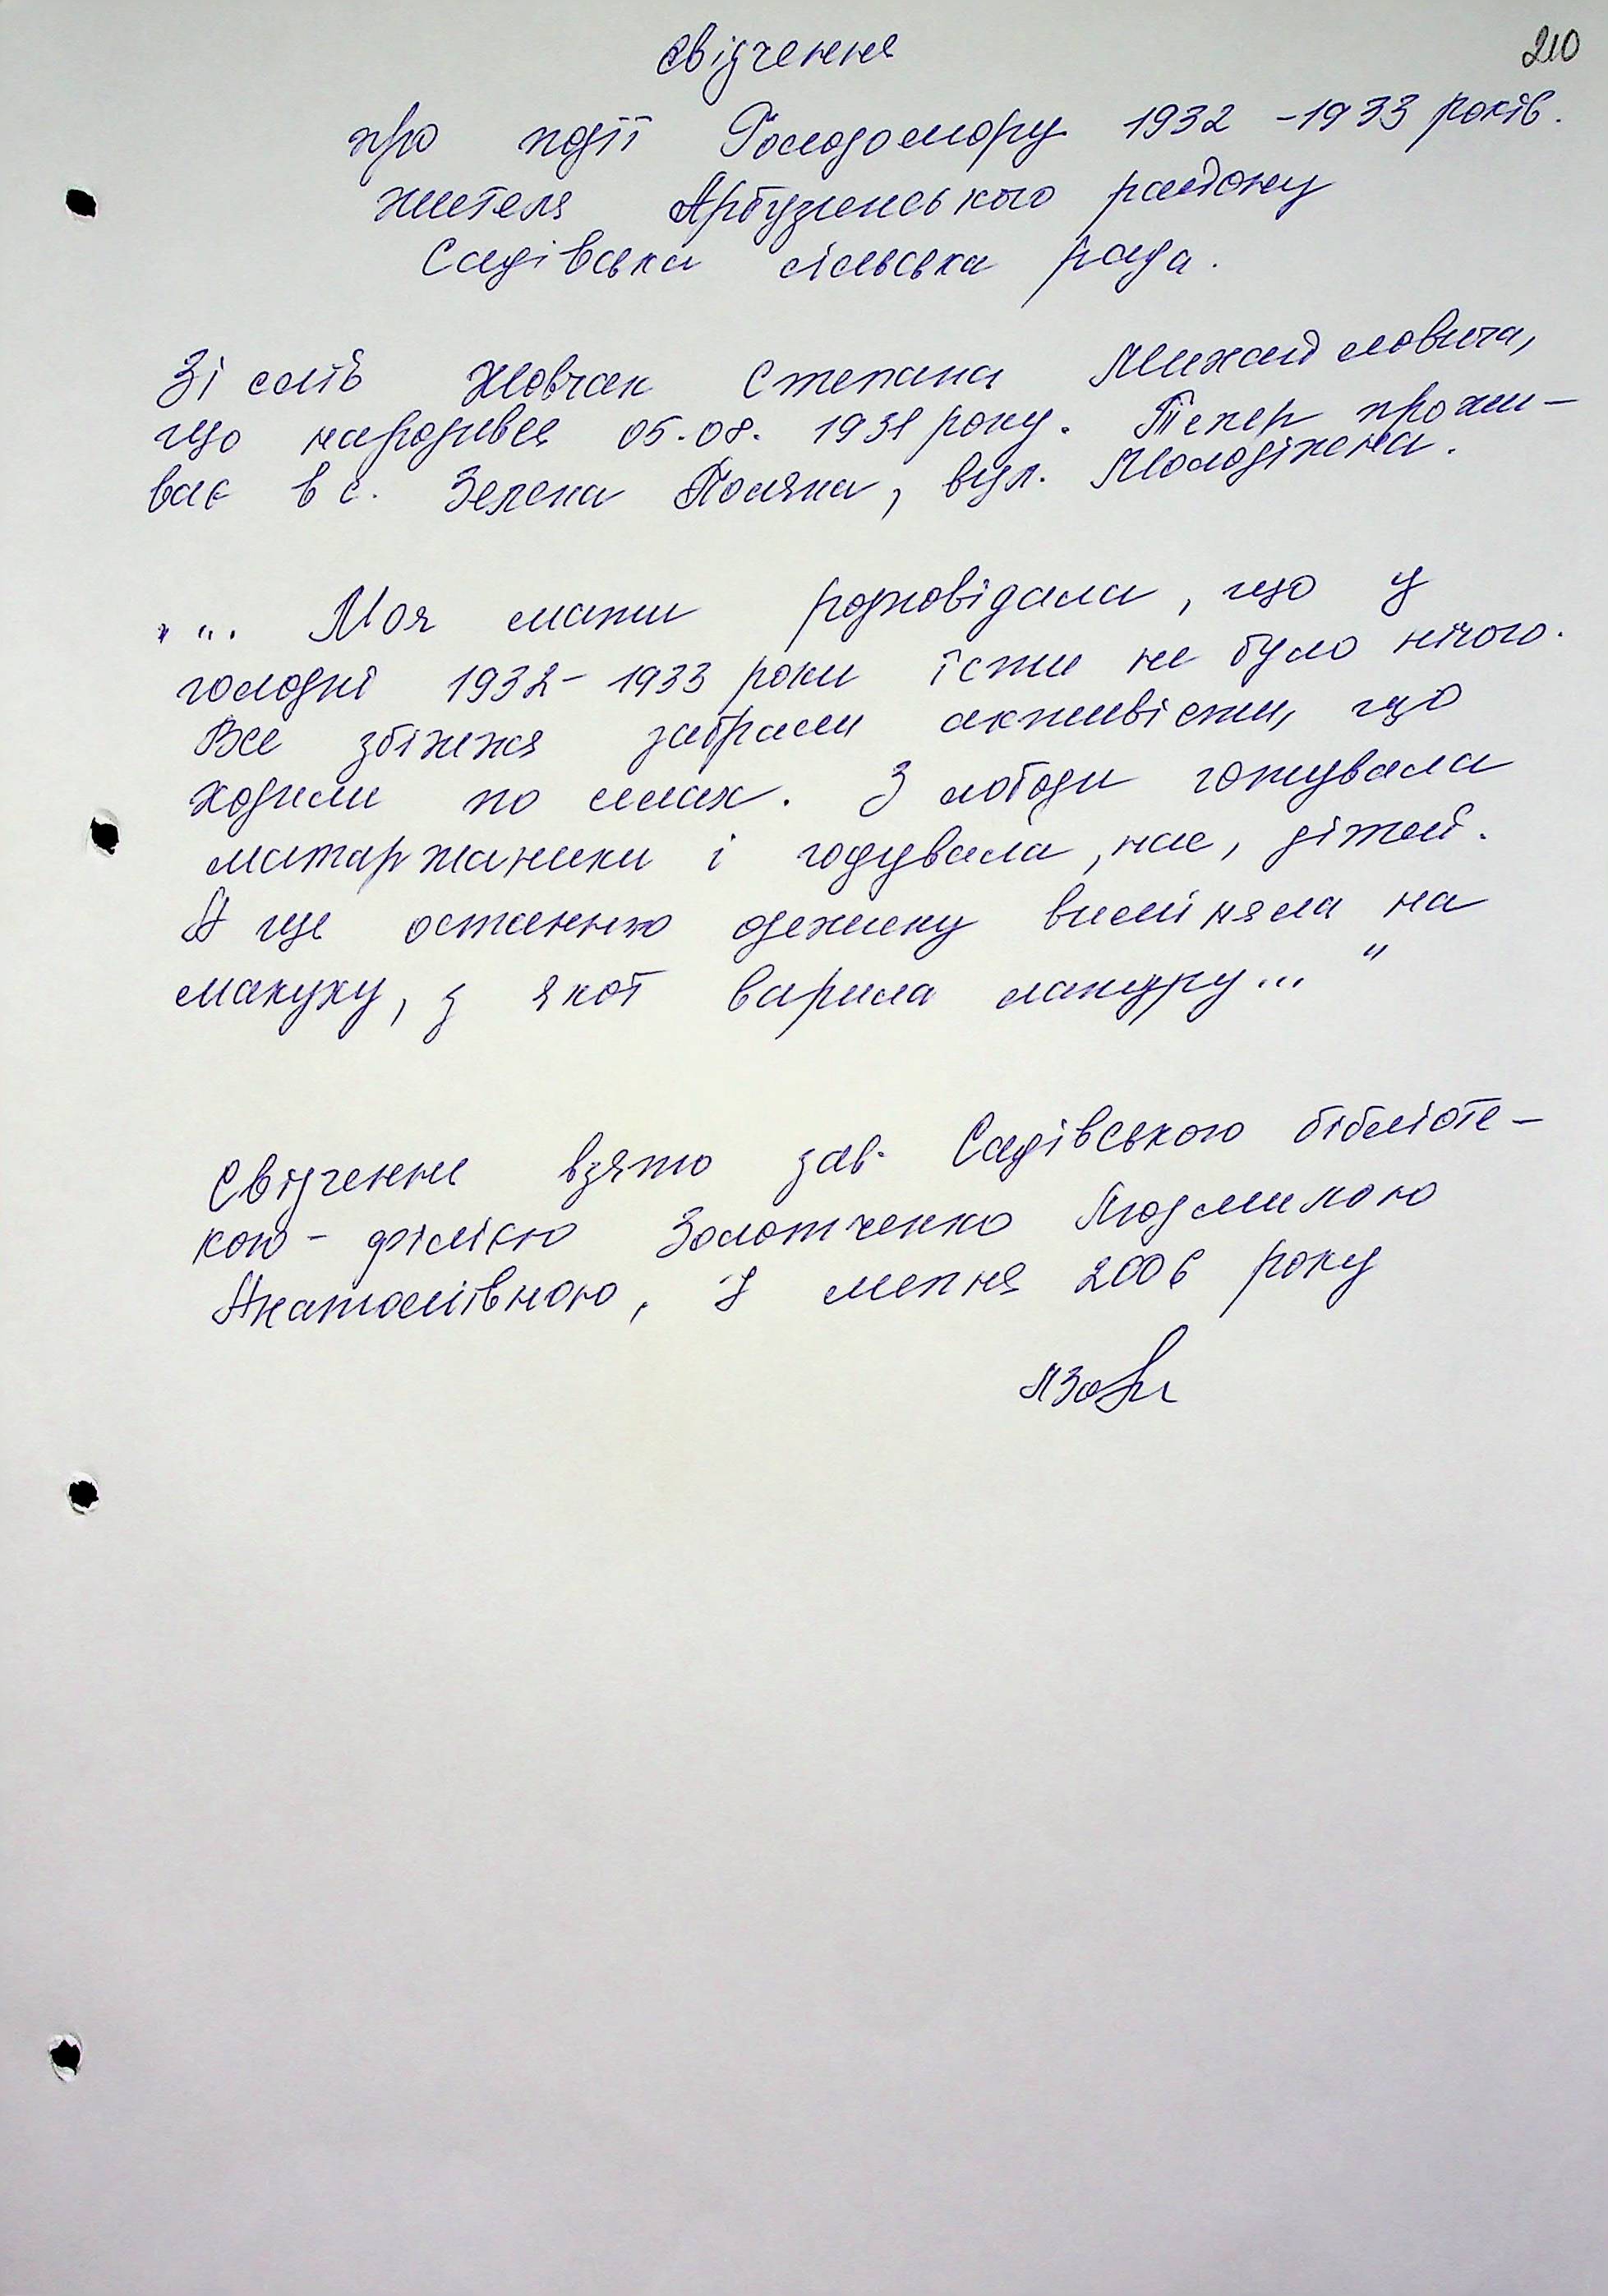 210
Свідчення
про події Голодомору 1932 - 1933 років.
жителя Арбузинського району
Садівська сільська рада.
Зі слів Жовчак Степана Михайловича,
що народився 05.08. 1931 року. Тепер прожи-
ває в с. Зелена Поляна, вул. Молодіжна.
"... Моя мати розповідала, що у
голодні 1932 - 1933 роки їсти не було нічого.
Все збіжжя забрали активісти, що
ходили по селах. З лободи готувала
маторжаники і годувала, нас, дітей.
А ще останню одежину виміняла на
макуху, з якої варила мамуру... "
Свідчення взято зав. Садівською бібліоте-
кою - філією Золотченко Людмилою
Анатоліївною, у липня 2006 року